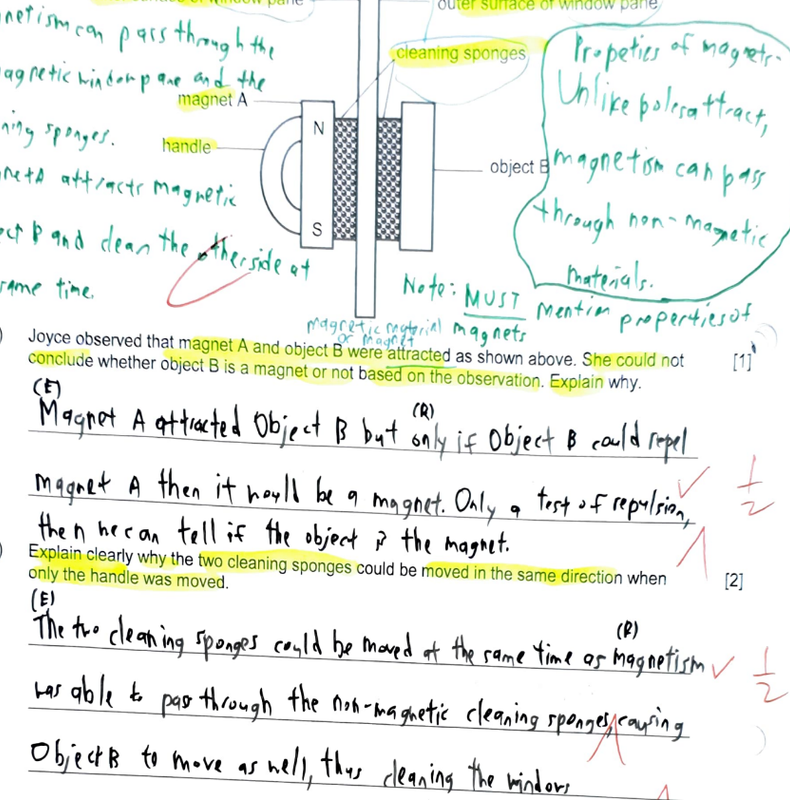 outer surface of window pane
netism can pass through the
agnetic window pane and the
ning sponges.
net A attracts magnetic
ect B and clean the other side at
same time.
cleaning sponges
magnet A
handle
N
S
object B
Propeties of magnets-
Unlike poles attract,
magnetism can pass
through non-magnetic
materials.
Note: MUST mention properties of
magnets
magnetic material
or magnet
Joyce observed that magnet A and object B were attracted as shown above. She could not [1]
conclude whether object B is a magnet or not based on the observation. Explain why.
(E) (R)
Magnet A attracted Object B but only if Object B could repel
magnet A then it would be a magnet. Only a test of repulsion, 1/2
then he can tell if the object is the magnet.
Explain clearly why the two cleaning sponges could be moved in the same direction when [2]
only the handle was moved.
(E) (R)
The two cleaning sponges could be moved at the same time as magnetism 1/2
was able to pass through the non-magnetic cleaning sponges, causing
Object B to move as well, thus cleaning the windows